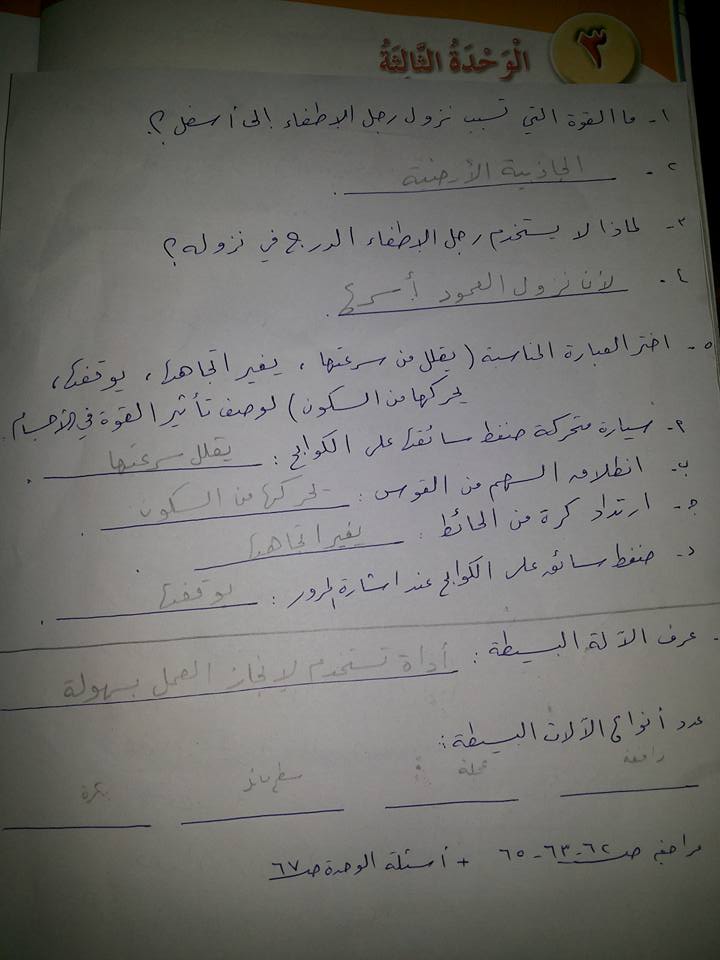 ٣ الْوَحْدَةُ الثَّالِثَةُ
١- ما القوة التي تسبب نزول رجل الإطفاء إلى أسفل؟
٢- الجاذبية الأرضية.
٣- لماذا لا يستخدم رجل الإطفاء الدرج في نزوله؟
٤- لأن نزول العمود أسرع.
٥- اختر العبارة المناسبة (يقلل من سرعتها، يغير اتجاهها، يوقفها،
يحركها من السكون) لوصف تأثير القوة في الأجسام.
م- سيارة متحركة ضغط سائقها على الكوابح: يقلل سرعتها.
ب- انطلاق السهم من القوس: يحركها من السكون.
ج- ارتداد كرة من الحائط: يغير اتجاهها.
د- ضغط سائق على الكوابح عند اشارة المرور: يوقفها.
- عرف الآلة البسيطة: أداة تستخدم لإنجاز العمل بسهولة
عدد أنواع الآلات البسيطة:
رافعة عجلة سطح مائل بكرة
مراجعة ص ٦٢-٦٣-٦٥ + أسئلة الوحدة ص ٦٧